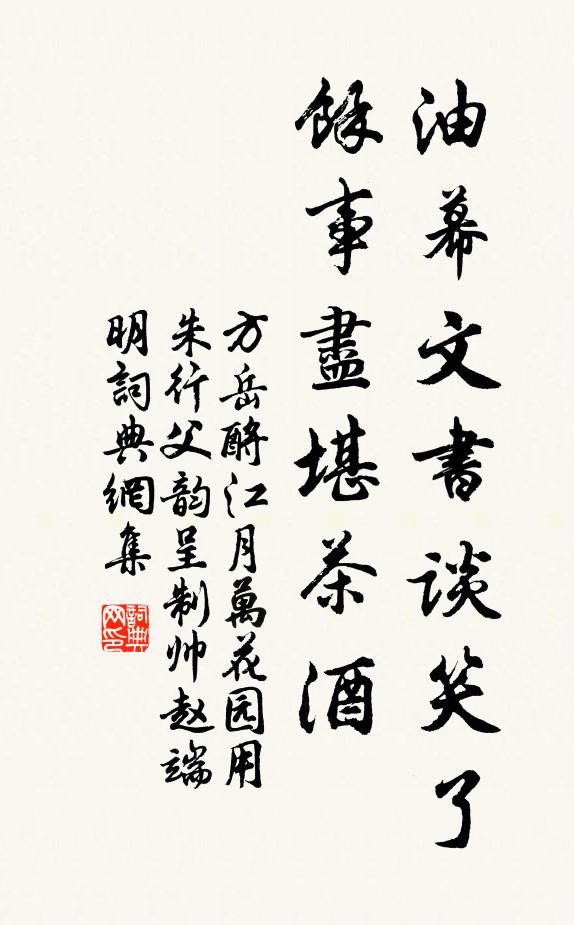 油幕文書談笑了
餘事盡堪茶酒
方岳酹江月萬花园用
朱行父韵呈制帅赵端
明詞典網集
詞典
网印